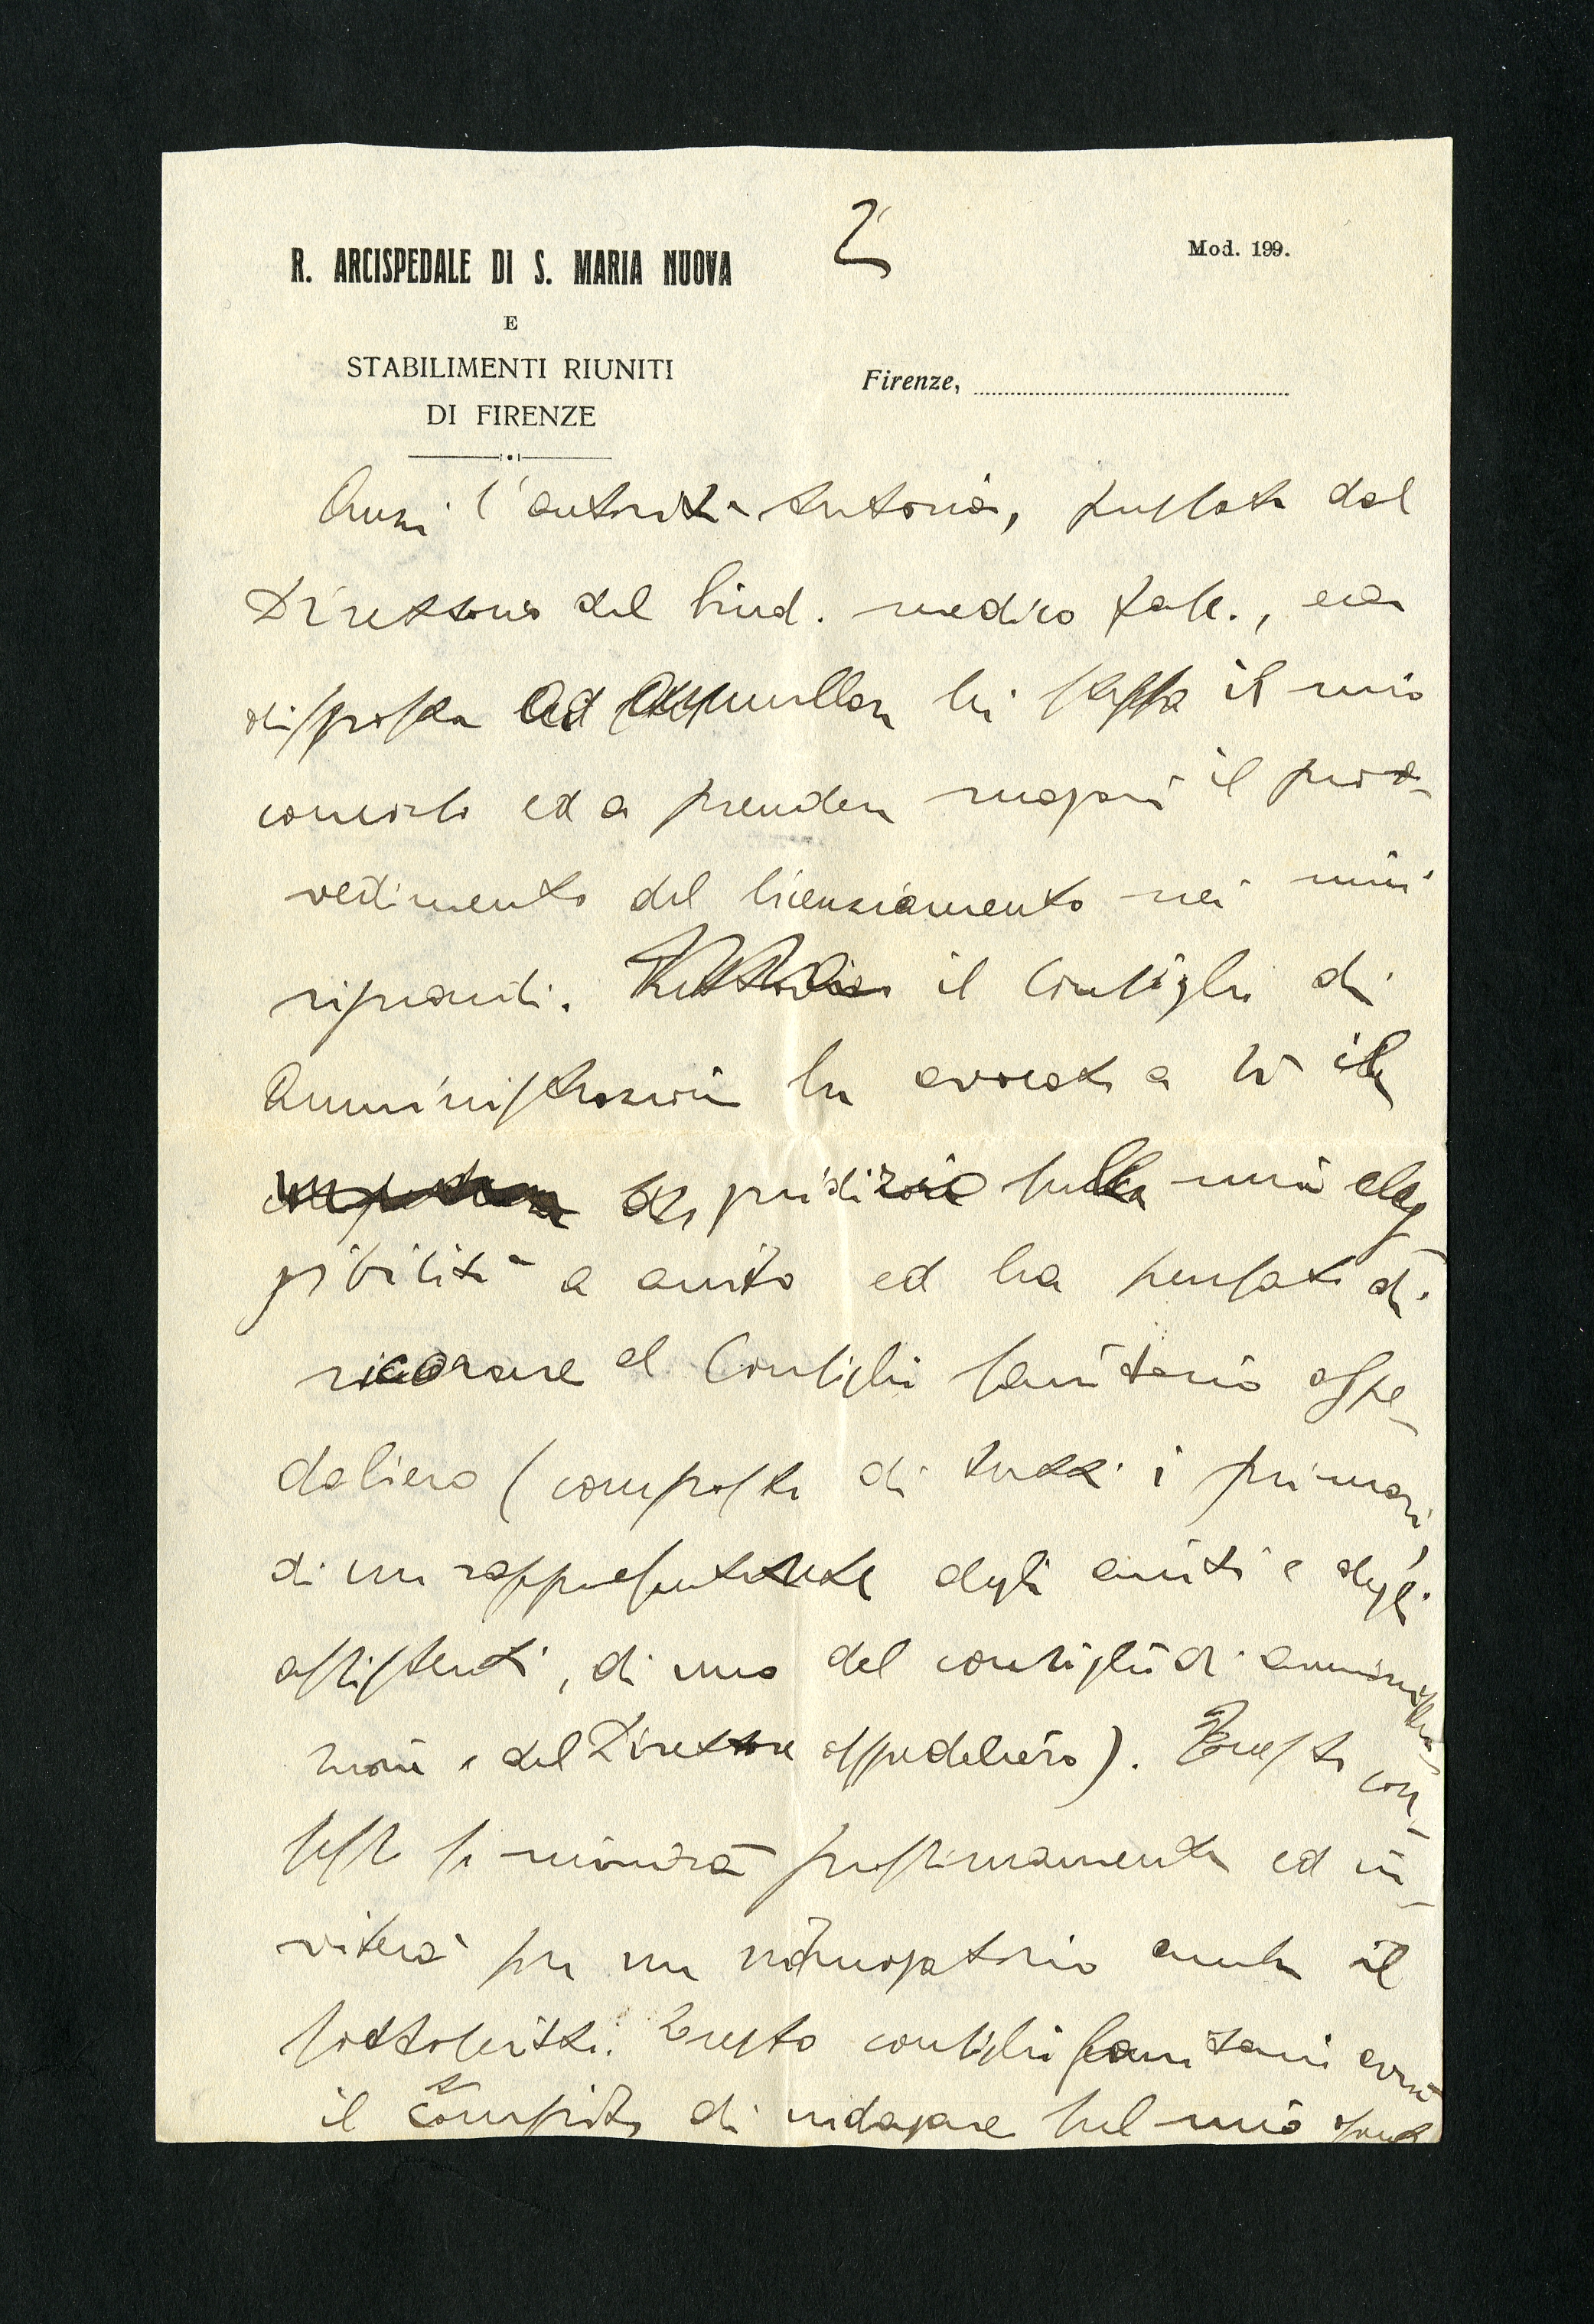 2
R. ARCISPEDALE DI S. MARIA NUOVA
Mod. 199.
E
STABILIMENTI RIUNITI
DI FIRENZE
Firenze,
Anzi l'autorità tutoria, pressata dal
Direttorio del Sind. medico fasc., era
disposta ad annullare lei stessa il mio
concorso ed a prendere magari il prov-
vedimento del licenziamento nei miei
riguardi. il Consiglio di
Amministrazione ha avocato a sé il
giudizio sulla mia eleg
gibilità a aiuto ed ha pensato di
ricorrere al Consiglio sanitario ospe-
daliero (composto di tutti i primari,
di un rappresentante degli aiuti e degli
assistenti, di uno del consiglio di amministra-
zione e del Direttore ospedaliero). Questo con-
sesso si riunirà prossimamente ed in-
viterà per un interrogatorio anche il
sottoscritto. Questo consiglio sanitario avrà
il compito di indagare sul mio